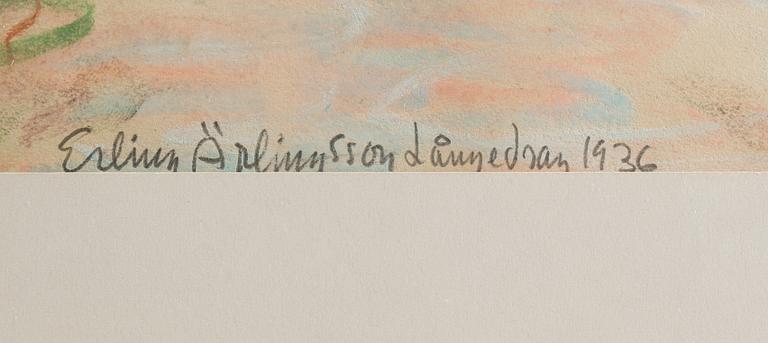 Erling Ärlingsson Långedrag 1936